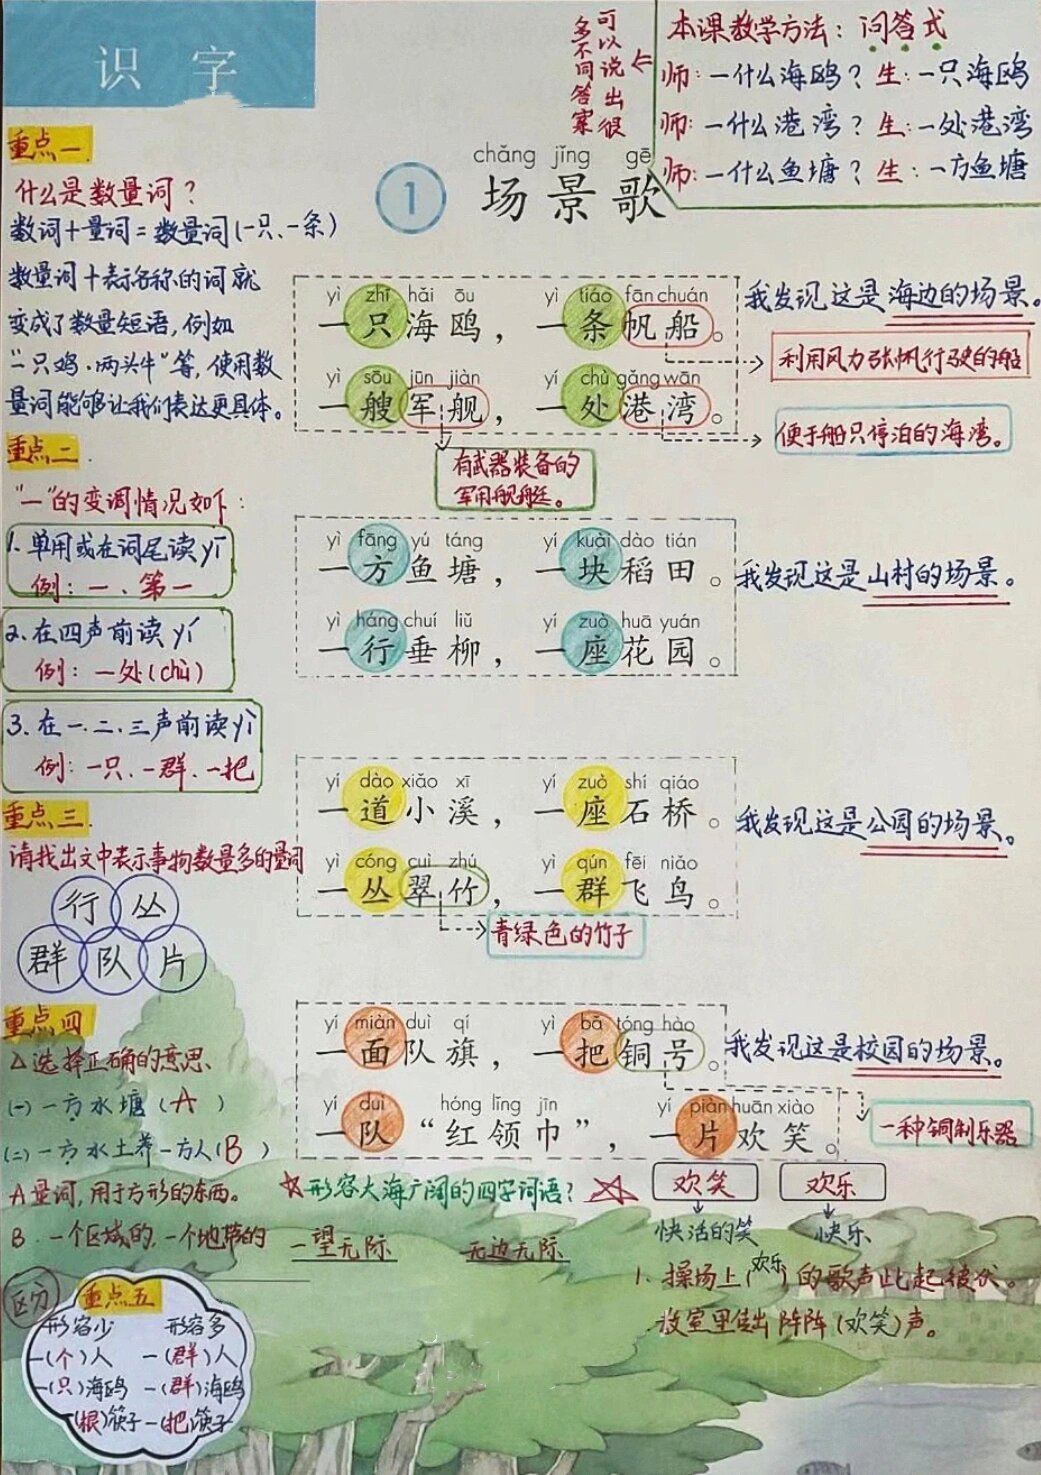 识字
可以说出很
多不同答案
本课教学方法：问答式
师：一什么海鸥？ 生：一只海鸥
师：一什么港湾？ 生：一处港湾
师：一什么鱼塘？ 生：一方鱼塘
chǎng jǐng gē
1 场景歌
重点一
什么是数量词？
数词＋量词＝数量词(一只、一条)
数量词＋表示名称的词就
变成了数量短语，例如
“一只鸡·两头牛”等，使用数
量词能够让我们表达更具体。
yì zhī hǎi ōu yì tiáo fān chuán
一只海鸥，一条帆船。
yì sōu jūn jiàn yí chù gǎng wān
一艘军舰，一处港湾。
我发现这是海边的场景。
利用风力张帆行驶的船
便于船只停泊的海湾。
有武器装备的
军用舰艇。
重点二
“一”的变调情况如下：
1. 单用或在词尾读yī
例：一、第一
2. 在四声前读yí
例：一处(chù)
3. 在一.二.三声前读yì
例：一只.一群.一把
yì fāng yú táng yí kuài dào tián
一方鱼塘，一块稻田。
yì háng chuí liǔ yí zuò huā yuán
一行垂柳，一座花园。
我发现这是山村的场景。
重点三
请找出文中表示事物数量多的量词
行 丛
群 队 片
yí dào xiǎo xī yí zuò shí qiáo
一道小溪，一座石桥。
yì cóng cuì zhú yì qún fēi niǎo
一丛翠竹，一群飞鸟。
我发现这是公园的场景。
青绿色的竹子
重点四
△选择正确的意思、
(一)一方水塘（A ）
(二)一方水土养一方人(B ）
A 量词，用于方形的东西。
B. 一个区域的，一个地带的
yí miàn duì qí yì bǎ tóng hào
一面队旗，一把铜号。
yí duì hóng lǐng jīn yí piàn huān xiào
一队“红领巾”，一片欢笑。
我发现这是校园的场景。
一种铜制乐器
☆形容大海广阔的四字词语？
一望无际 无边无际
欢笑 欢乐
快活的笑 快乐
1. 操场上(欢乐)的歌声此起彼伏。
教室里传出阵阵(欢笑)声。
区分
重点五
形容少 形容多
一(个)人 一(群)人
一(只)海鸥 一(群)海鸥
一(根)筷子 一(把)筷子